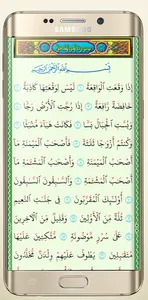 SAMSUNG
بِسْمِ اللَّهِ الرَّحْمَٰنِ الرَّحِيمِ
إِذَا وَقَعَتِ الْوَاقِعَةُ لَيْسَ لِوَقْعَتِهَا كَاذِبَةٌ
خَافِضَةٌ رَّافِعَةٌ إِذَا رُجَّتِ الْأَرْضُ رَجًّا
وَبُسَّتِ الْجِبَالُ بَسًّا فَكَانَتْ هَبَاءً مُّنبَثًّا
وَكُنتُمْ أَزْوَاجًا ثَلَاثَةً فَأَصْحَابُ الْمَيْمَنَةِ مَا
أَصْحَابُ الْمَيْمَنَةِ وَأَصْحَابُ الْمَشْأَمَةِ مَا
أَصْحَابُ الْمَشْأَمَةِ وَالسَّابِقُونَ السَّابِقُونَ
أُولَٰئِكَ الْمُقَرَّبُونَ فِي جَنَّاتِ النَّعِيمِ
ثُلَّةٌ مِّنَ الْأَوَّلِينَ وَقَلِيلٌ مِّنَ الْآخِرِينَ
عَلَىٰ سُرُرٍ مَّوْضُونَةٍ مُّتَّكِئِينَ عَلَيْهَا
مُتَقَابِلِينَ يَطُوفُ عَلَيْهِمْ وِلْدَانٌ مُّخَلَّدُونَ